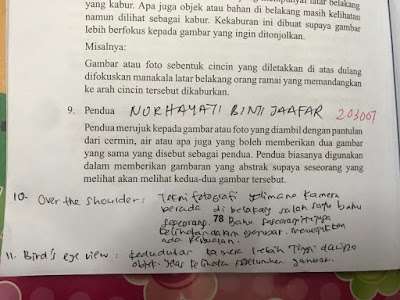 yang kabur. Apa juga objek atau bahan di belakang masih kelihatan
namun dilihat sebagai kabur. Kekaburan ini dibuat supaya gambar
lebih berfokus kepada gambar yang ingin ditonjolkan.
Misalnya:
Gambar atau foto sebentuk cincin yang diletakkan di atas dulang
difokuskan manakala latar belakang orang ramai yang memandangkan
ke arah cincin tersebut dikaburkan.
9. Pendua NURHAYATI BINTI JAAFAR 203007
Pendua merujuk kepada gambar atau foto yang diambil dengan pantulan
dari cermin, air atau apa juga yang boleh memberikan dua gambar
yang sama yang disebut sebagai pendua. Pendua biasanya digunakan
dalam memberikan gambaran yang abstrak supaya seseorang yang
melihat akan melihat kedua-dua gambar tersebut.
10- Over the shoulder: Teknik fotografi dimana kamera
berada di belakang salah satu bahu
seseorang. 78 Bahu seseorang itu juga
kelihatan dalam gambar.
ada perbualan.
11. Bird's eye view: kedudukan kamera lebih tinggi daripada
objek. jelas kelihatan keseluruhan gambar.